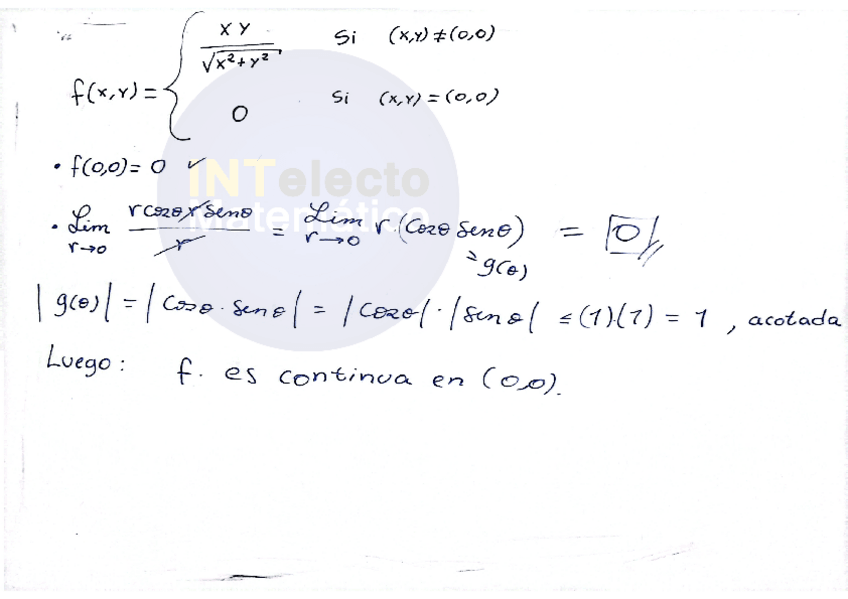 f(x,y) = { xy / √(x²+y²) Si (x,y) ≠ (0,0)
0 Si (x,y) = (0,0)
• f(0,0) = 0 ✓
INTelecto
Matemático
• Lim r→0 r cosθ r senθ / r = Lim r→0 r · (cosθ senθ) = 0
= g(θ)
|g(θ)| = |cosθ · senθ| = |cosθ| · |senθ| ≤ (1)·(1) = 1 , acotada
Luego : f. es continua en (0,0).